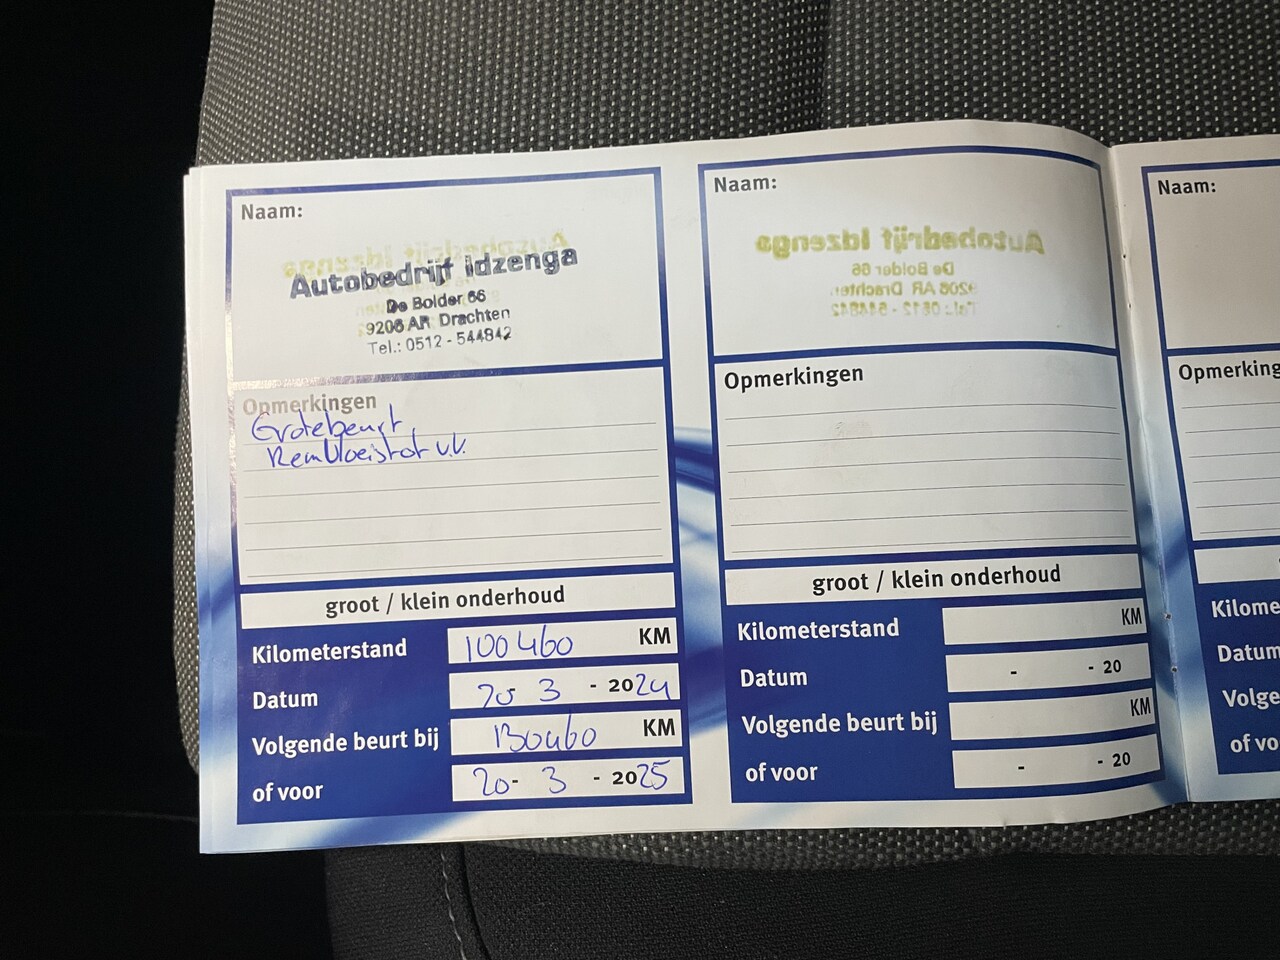 Naam:
Autobedrijf Idzenga
De Bolder 66
9206 AR Drachten
Tel.: 0512 - 544842
Opmerkingen
Grotebeurt,
Remvloeistof v.v.
groot / klein onderhoud
Kilometerstand 100460 KM
Datum 20 3 - 2024
Volgende beurt bij 130460 KM
of voor 20- 3 - 2025
Naam:
Autobedrijf Idzenga
De Bolder 66
9206 AR Drachten
Tel.: 0512 - 544842
Opmerkingen
groot / klein onderhoud
Kilometerstand KM
Datum - - 20
Volgende beurt bij KM
of voor - - 20
Naam:
Opmerking
Kilome
Datum
Volge
of vo